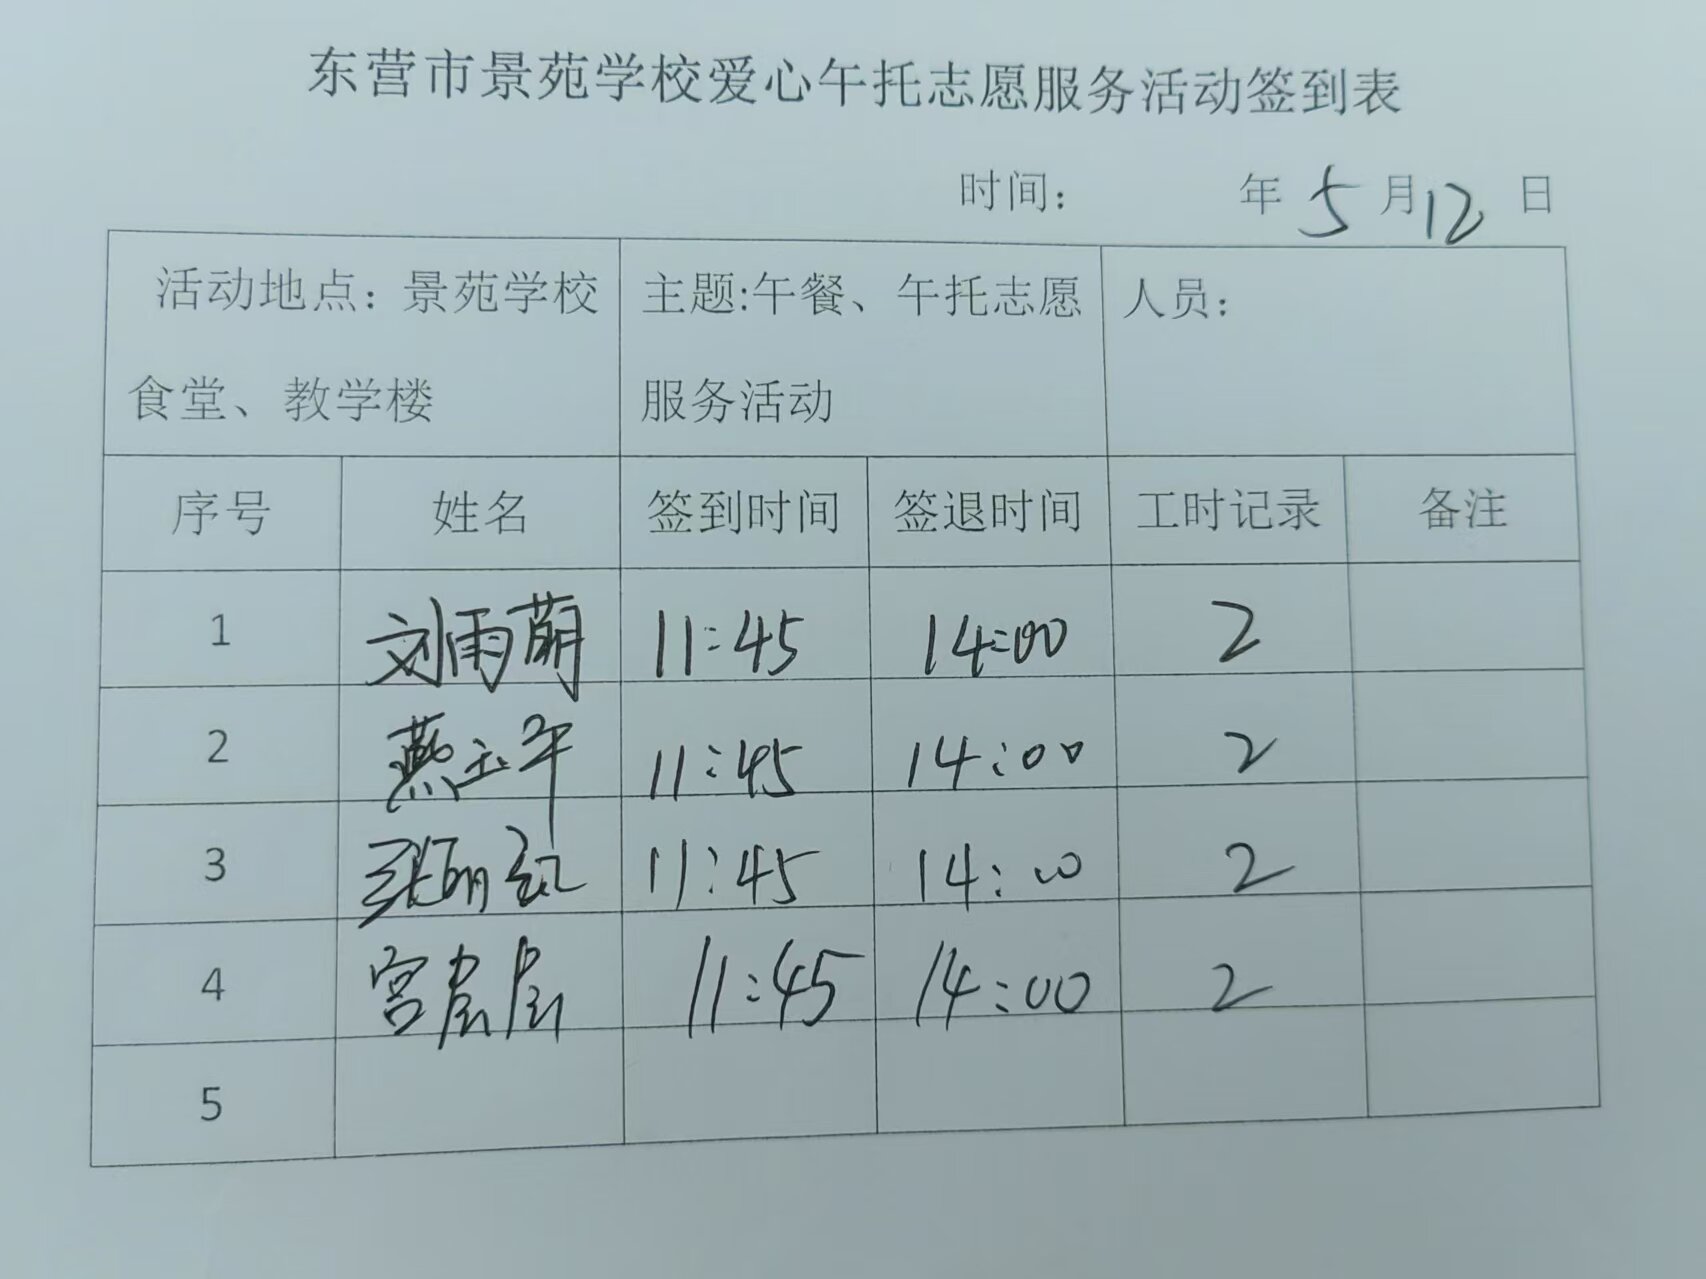 东营市景苑学校爱心午托志愿服务活动签到表
时间： 年 5 月 12 日
活动地点：景苑学校 主题:午餐、午托志愿 人员：
食堂、教学楼 服务活动
序号 姓名 签到时间 签退时间 工时记录 备注
1 刘雨萌 11:45 14:00 2
2 燕玉 11:45 14:00 2
3 张丽红 11:45 14:00 2
4 宫层层 11:45 14:00 2
5